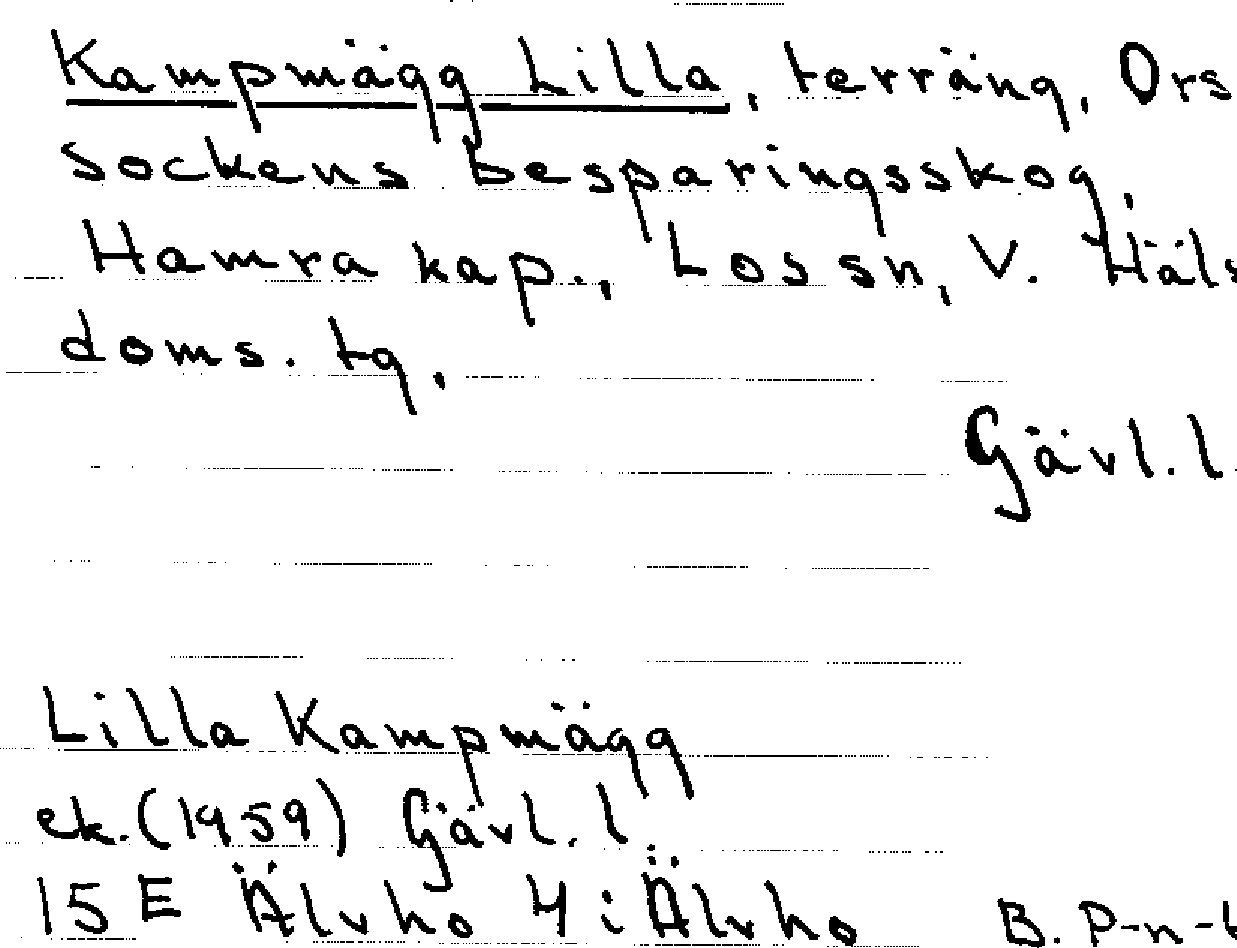 Kampmägg Lilla, terräng, Ors
sockens besparingsskog,
Hamra kap., Los sn, V. Häls
doms. tg,
Gävl. l.
Lilla Kampmägg
ek. (1959) Gävl. l.
15 E Älvho 4 i Älvho B. P-n-b